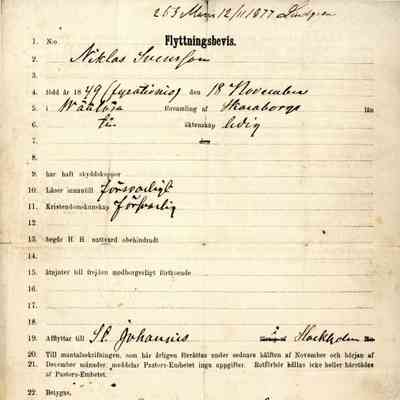 263 Mara 12/11 1877 Lindgren
1. N:o Flyttningsbevis.
2. Niklas Svensson
3.
4. född år 1849 (fyrationio) den 18 November
5. i församling af Skaraborgs län
6. för äktenskap ledig
7.
8.
9. har haft skyddskoppor
10. Läser innantill försvarligt
11. Kristendomskunskap försvarlig
12.
13. begår H. H. nattvard obehindradt
14.
15. åtnjuter till frejden medborgerligt förtroende
16.
17.
18.
19. Afflyttar till St. Johannis i Stockholm
20. Till mantalsskrifningen, som här årligen förrättas under sednare hälften af November och början af
21. December månader, meddelar Pastors-Embetet inga uppgifter. Ratförhör hållas icke heller härstädes
af Pastors-Embetet.
22. Betygas,